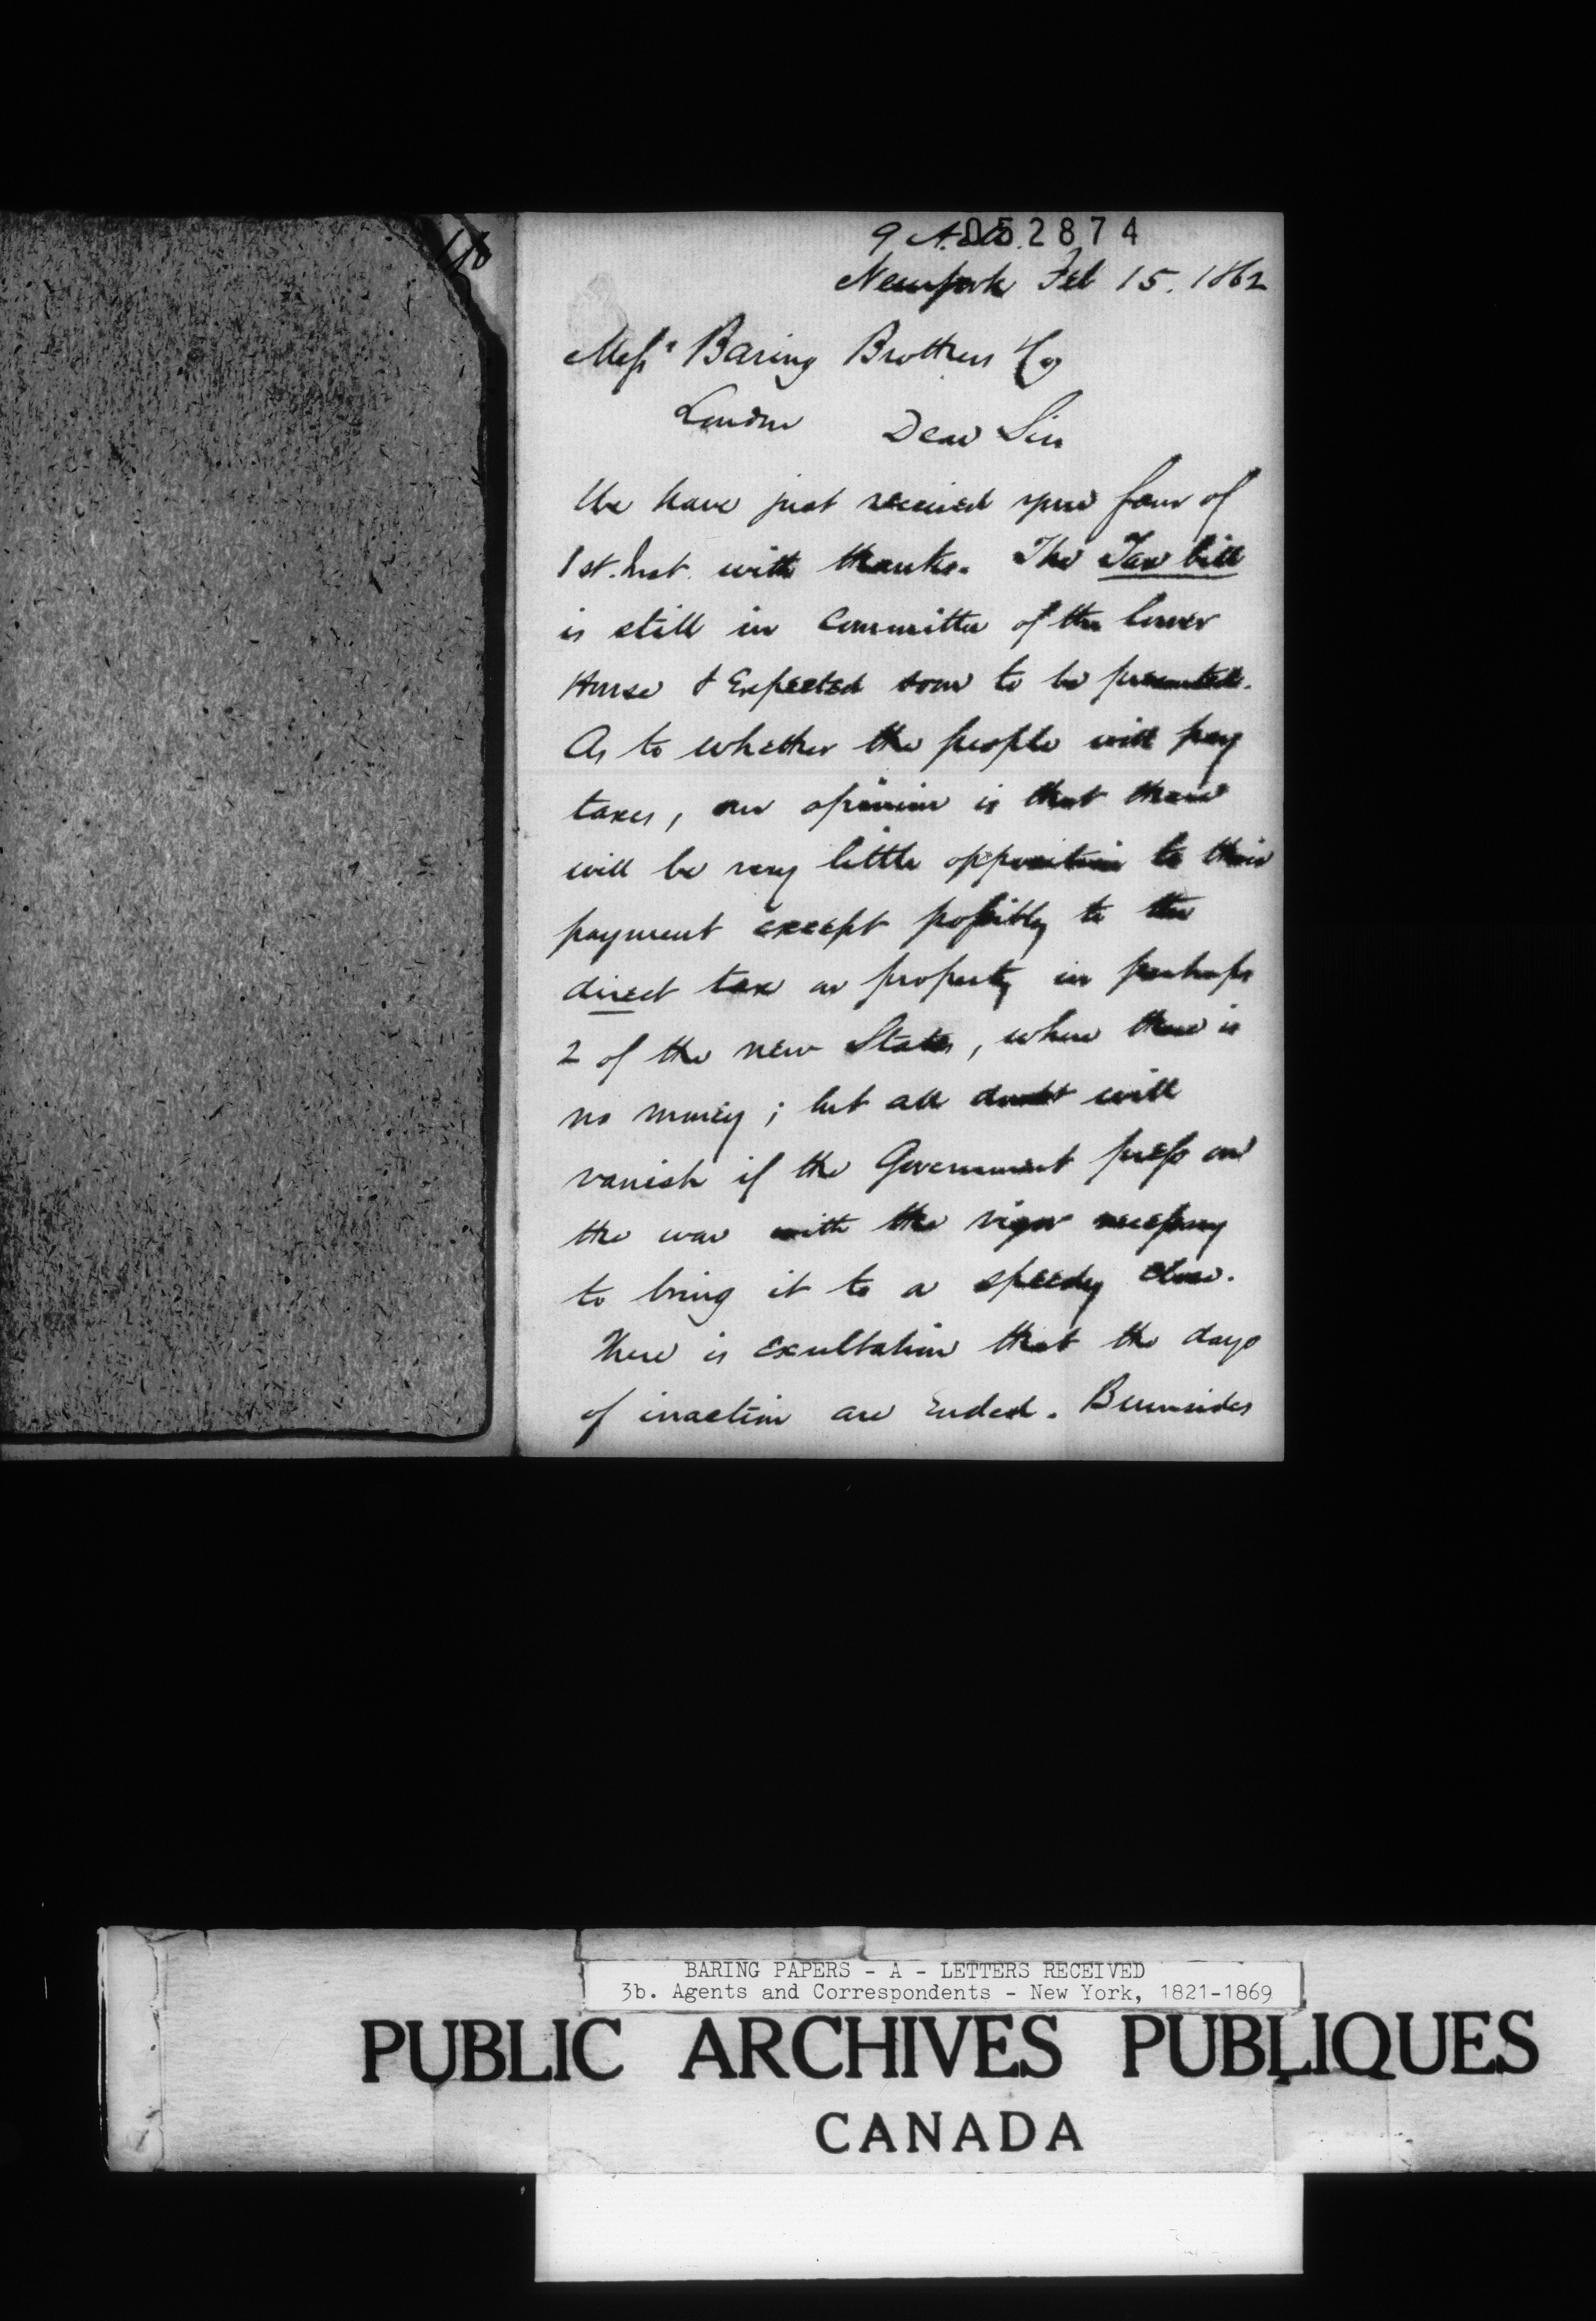 052874
9 A.M.
New York Feb 15. 1862
Messrs Baring Brothers & Co
London Dear Sirs
We have just received your favor of
1st. Inst. with thanks. The Tax bill
is still in Committee of the lower
House & Expected soon to be presented.
As to whether the people will pay
taxes, our opinion is that there
will be very little opposition to their
payment except possibly to the
direct tax on property in perhaps
2 of the new States, where there is
no money; but all doubt will
vanish if the Government press on
the war with the vigor necessary
to bring it to a speedy close.
There is exultation that the days
of inaction are Ended. Burnsides
BARING PAPERS - A - LETTERS RECEIVED
3b. Agents and Correspondents - New York, 1821-1869
PUBLIC ARCHIVES PUBLIQUES
CANADA